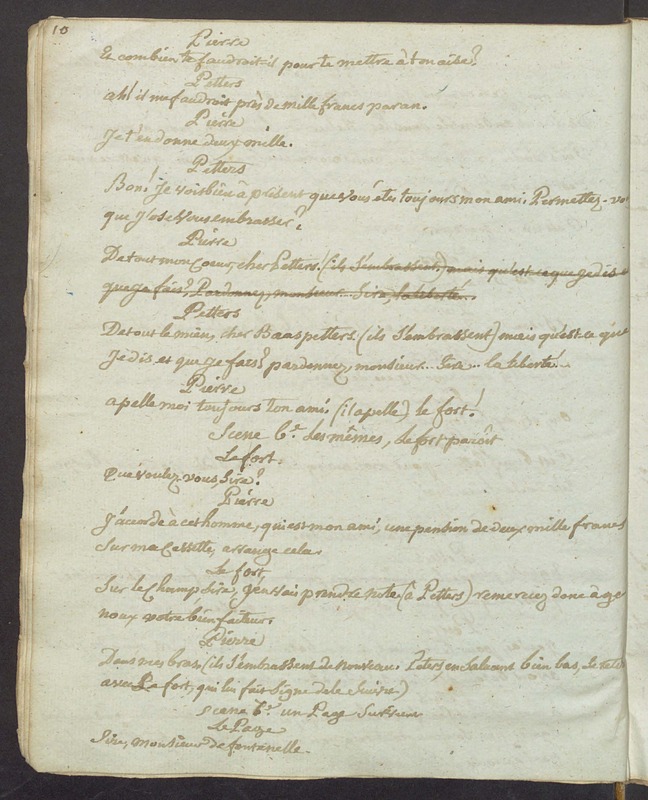 10
Pierre
Et combien te faudroit-il pour te mettre à ton aise?
Petters
ah! il me faudroit près de mille francs par an.
Pierre
Je t'en donne deux mille.
Petters
Bon! Je vois bien à présent que vous êtes toujours mon ami. Permettez-vo
que j'ose vous embrasser?
Pierre
De tout mon Coeur, cher Petters! (ils s'embrassent.) mais qu'est-ce que je dis e
que je fais? Pardonnez, monsieur... Sire, la liberté...
Petters
De tout le mien, cher Baas petters (ils s'embrassent) mais qu'est-ce que
Je dis, et que je fais? pardonnez, monsieur... Sire... la liberté...
Pierre
apelle moi toujours ton ami. (il apelle) le fort!
Scene 6.e Les mêmes, Le fort paroît
Le fort.
Que voulez vous, Sire?
Pierre
J'acorde à cet homme, qui est mon ami, une pension de deux mille francs
Sur ma Cassette, arrange cela.
Le fort,
Sur le Champ Sire, j'en vais prendre note (à Petters) remerciez donc à ge
noux votre bienfaiteur.
Pierre
Dans mes bras (ils s'embrassent de nouveau. Peters, en Saluant bien bas, Se retir
avec Le fort, qui lui fait Signe de le Suivre)
Scene un Page
Le Page
Sire, monsieur de fontenelle.